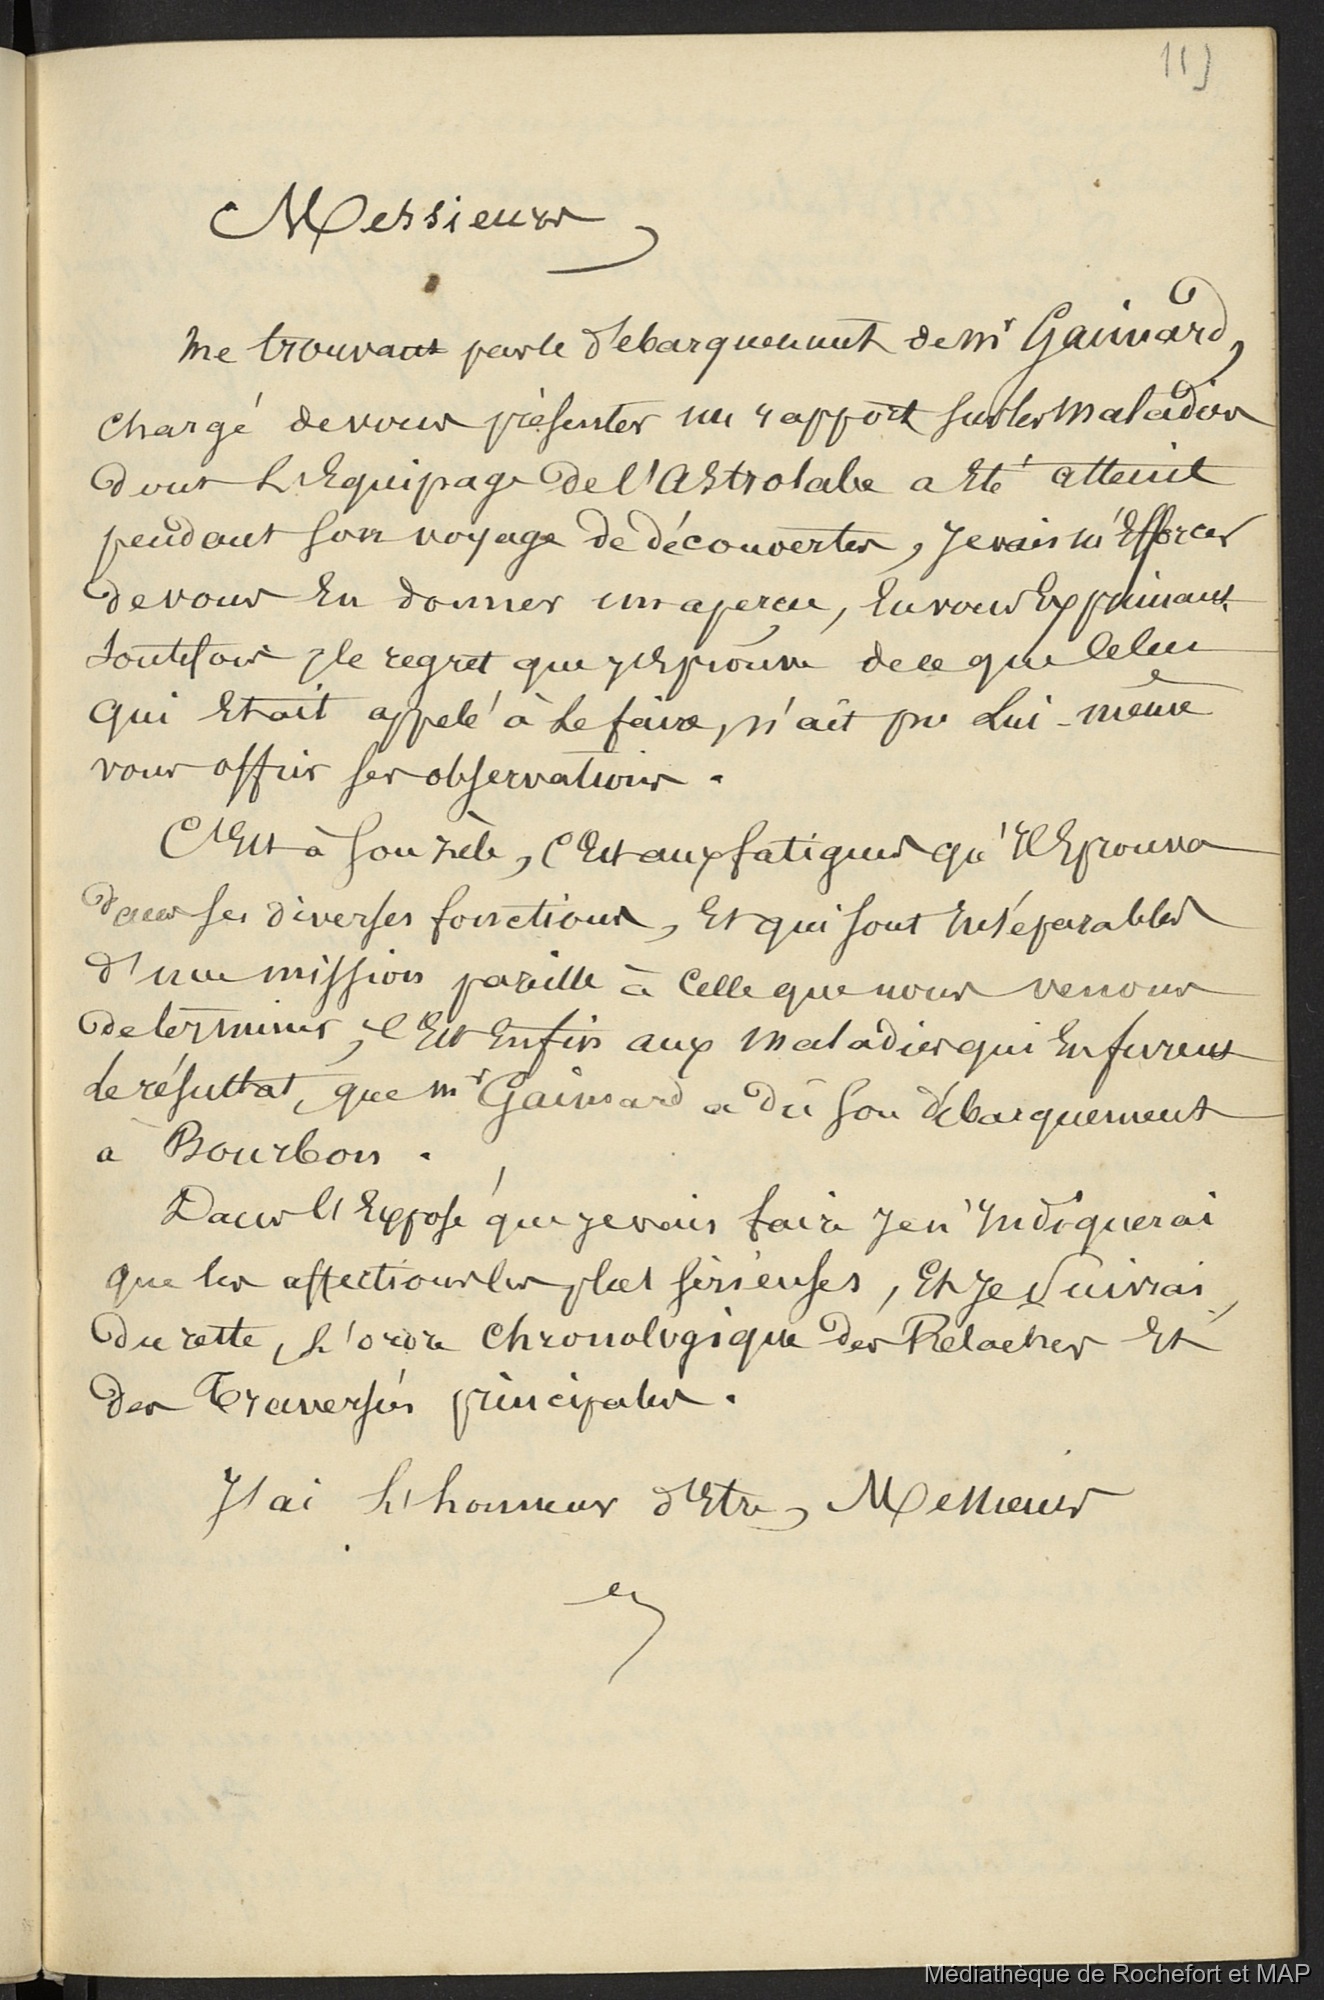 115
Messieurs,
Me trouvant par le débarquement de Mr Gaimard,
chargé de vous présenter un rapport sur les Maladies
dont L'Equipage de l'Astrolabe a Eté atteint
pendant son voyage de découvertes, Je vais m'Efforcer
de vous En donner un aperçu, En vous Exprimant
toutefois, le regret que J'Eprouve de ce que Celui
qui Etait appelé à Le faire, n'ait pu Lui-même
vous offrir ses observations.
C'Est à son zèle, C'Est aux fatigues qu'Il Eprouva
dans ses diverses fonctions, Et qui sont Inséparables
d'une mission pareille à Celle que nous venons
de terminer, C'Est Enfin aux Maladies qui En furent
Le résultat, que Mr Gaimard a dû son débarquement
à Bourbon.
Dans l'Exposé que Je vais faire Je n'Indiquerai
que les affections les plus sérieuses, Et Je Suivrai,
du reste, L'ordre Chronologique des Relaches Et
des Traversées principales.
J'ai L'honneur d'Etre, Messieurs
Médiathèque de Rochefort et MAP